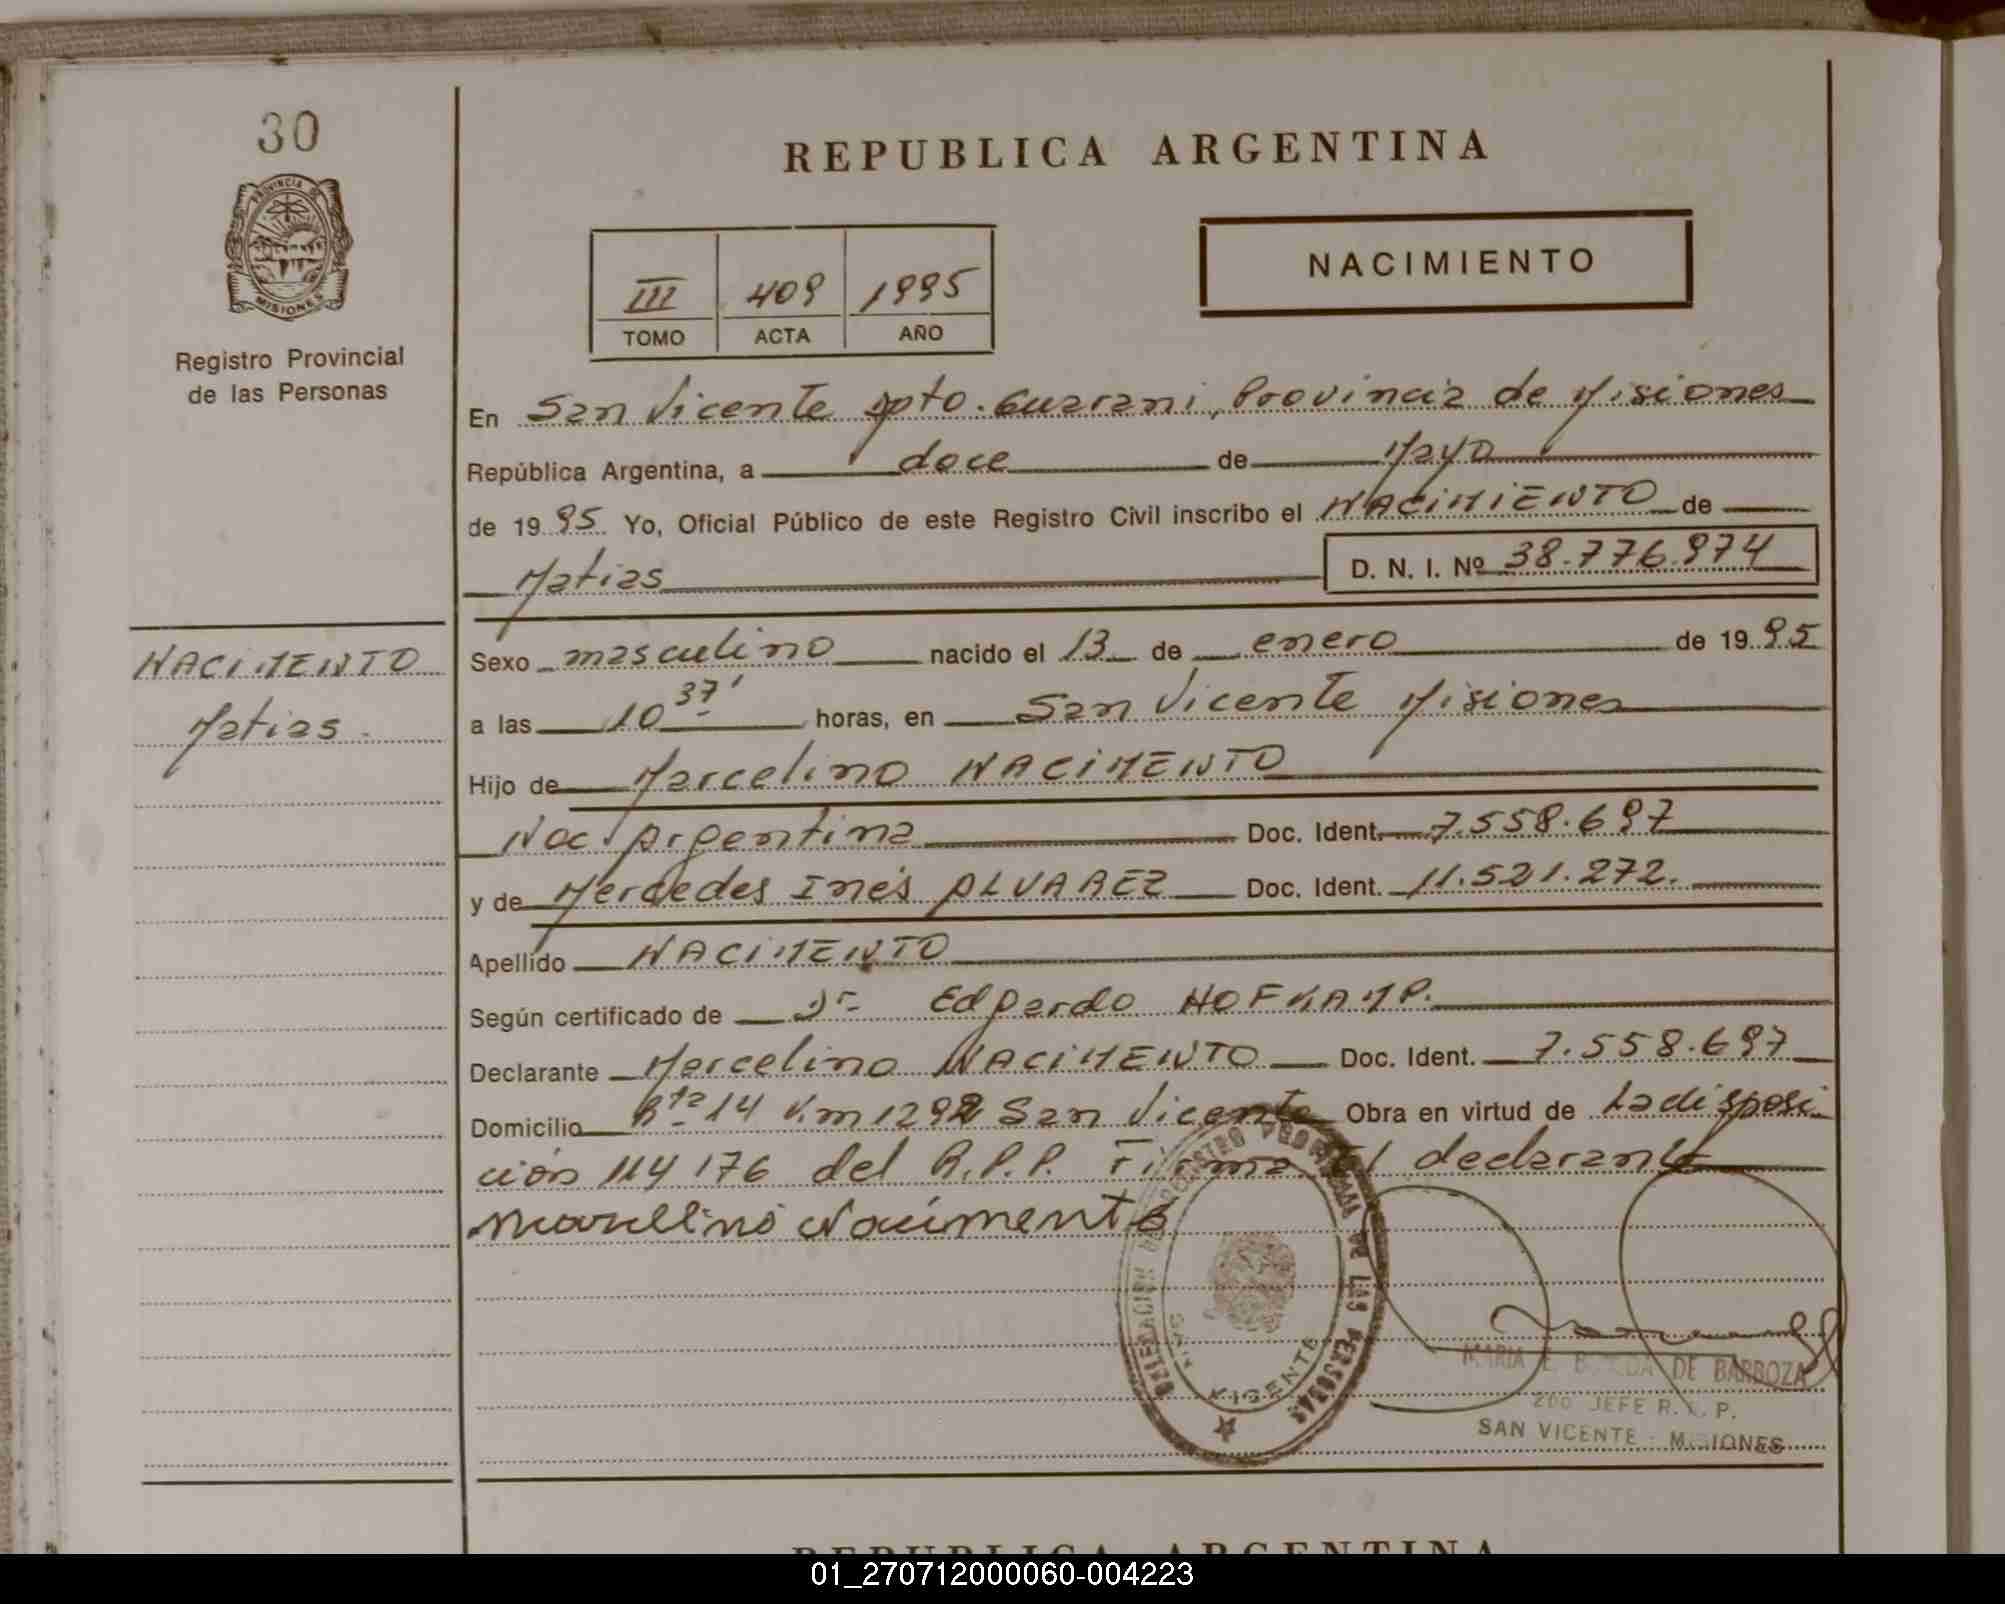 30
PROVINCIA DE
MISIONES
Registro Provincial
de las Personas
REPUBLICA ARGENTINA
III 409 1995
TOMO ACTA AÑO
NACIMIENTO
En San Vicente Dpto. Guarani, Provincia de Misiones
República Argentina, a doce de Mayo
de 19 95 Yo, Oficial Público de este Registro Civil inscribo el NACIMIENTO de
Matias D. N. I. Nº 38.776.974
NACIMENTO
Matias
Sexo masculino nacido el 13 de enero de 19 95
a las 10 37' horas, en San Vicente Misiones
Hijo de Marcelino NACIMENTO
Nac. Argentina Doc. Ident. 7.558.697
y de Mercedes Inés ALVAREZ Doc. Ident. 11.521.272.
Apellido NACIMENTO
Según certificado de Dr Edgardo HOFKAMP.
Declarante Marcelino NACIMENTO Doc. Ident. 7.558.697
Domicilio Rta 14 Km 1292 San Vicente Obra en virtud de La disposi
ción 114/76 del R.P.P. Firma el declarante
Marcelino Nacimento
DELEGACION REGISTRO PROVINCIAL DE LAS PERSONAS
SAN VICENTE
MARIA E. DE BARBOZA
2DO JEFE R. P.
SAN VICENTE - MISIONES
REPUBLICA ARGENTINA
01_270712000060-004223